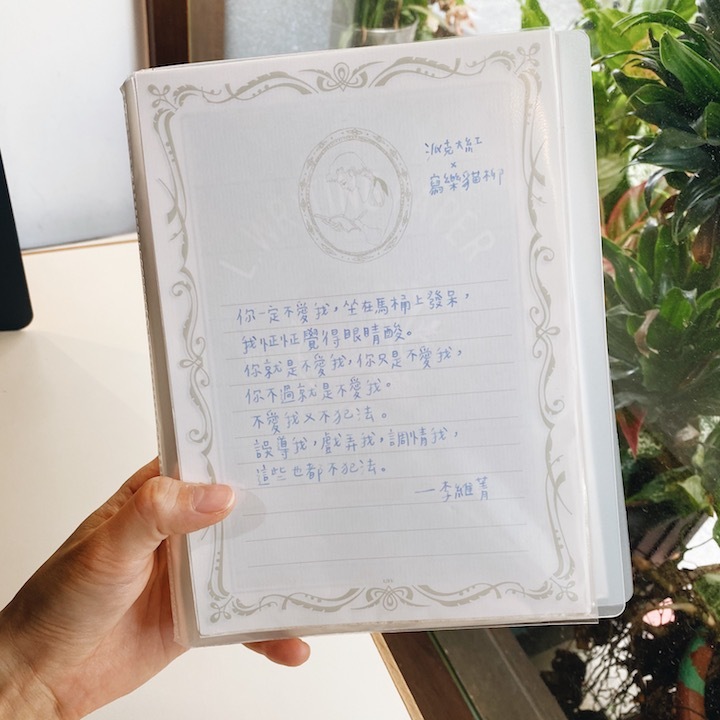 派克大紅
×
寫樂貓柳
你一定不愛我，坐在馬桶上發呆，
我怔怔覺得眼睛酸。
你就是不愛我，你只是不愛我，
你不過就是不愛我。
不愛我又不犯法。
誤導我，戲弄我，調情我，
這些也都不犯法。
—李維菁